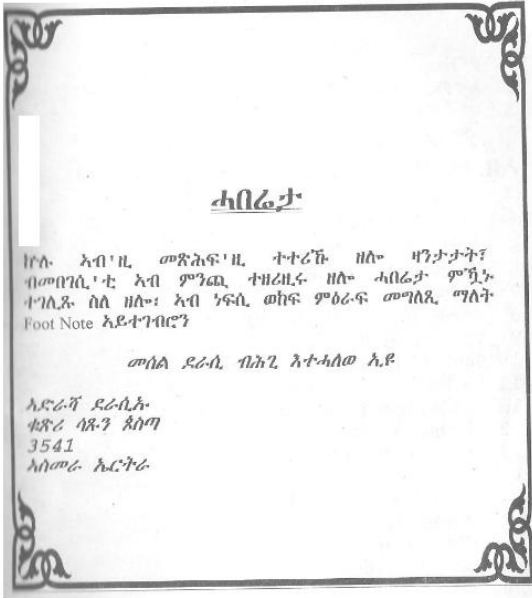 ሓበሬታ
ኵሉ ኣብ'ዚ መጽሕፍ'ዚ ተተሪኹ ዘሎ ዛንታታት፣
ብመበገሲ'ቲ ኣብ ምንጪ ተዘርዚሩ ዘሎ ሓበሬታ ምዃኑ
ተገሊጹ ስለ ዘሎ፡ ኣብ ነፍሲ ወከፍ ምዕራፍ መግለጺ ማለት
Foot Note ኣይተገብሮን
መሰል ደራሲ ብሕጊ እተሓለወ ኢዩ
ኣድራሻ ደራሲኡ
ቁጽሪ ሳጹን ጶስጣ
3541
ኣስመራ ኤርትራ